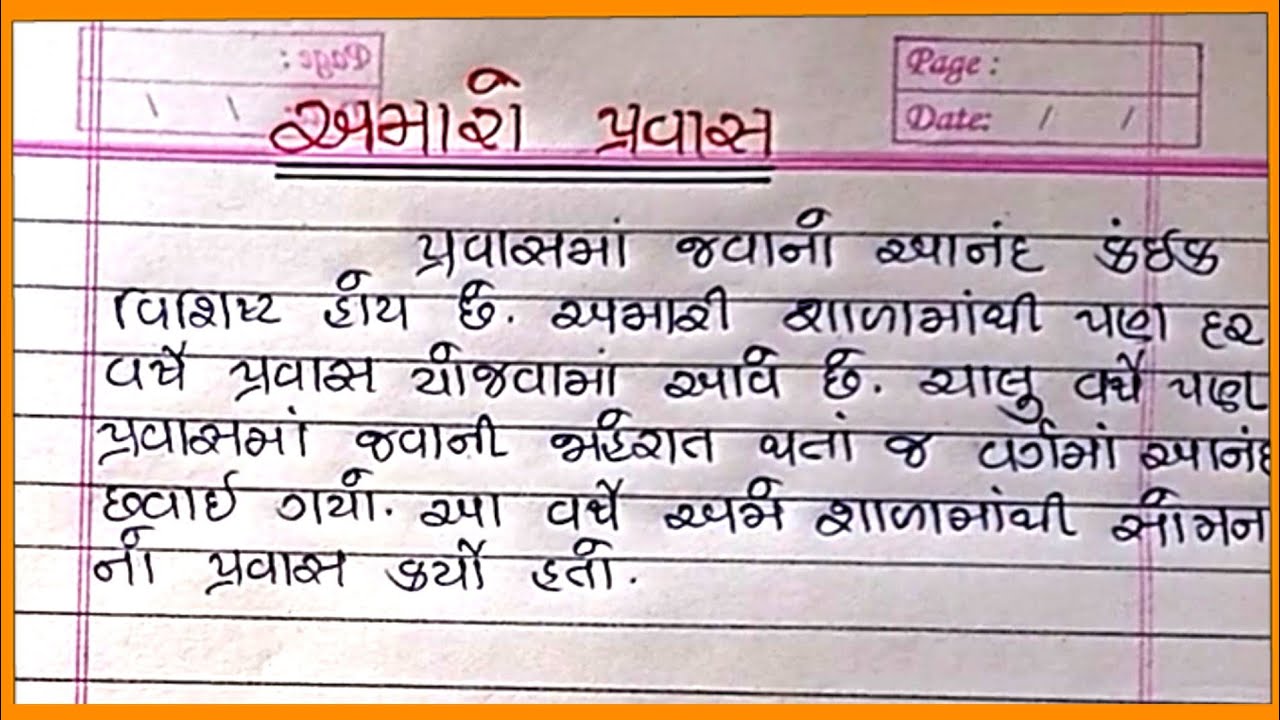 Page :
Date: / /
અમારો પ્રવાસ
પ્રવાસમાં જવાનો આનંદ કંઈક
વિશિષ્ટ હોય છે. અમારી શાળામાંથી પણ દર
વર્ષે પ્રવાસ યોજવામાં આવે છે. ચાલુ વર્ષે પણ
પ્રવાસમાં જવાની જાહેરાત થતાં જ વર્ગમાં આનંદ
છવાઈ ગયો. આ વર્ષે અમે શાળામાંથી સોમન
નો પ્રવાસ કર્યો હતો.